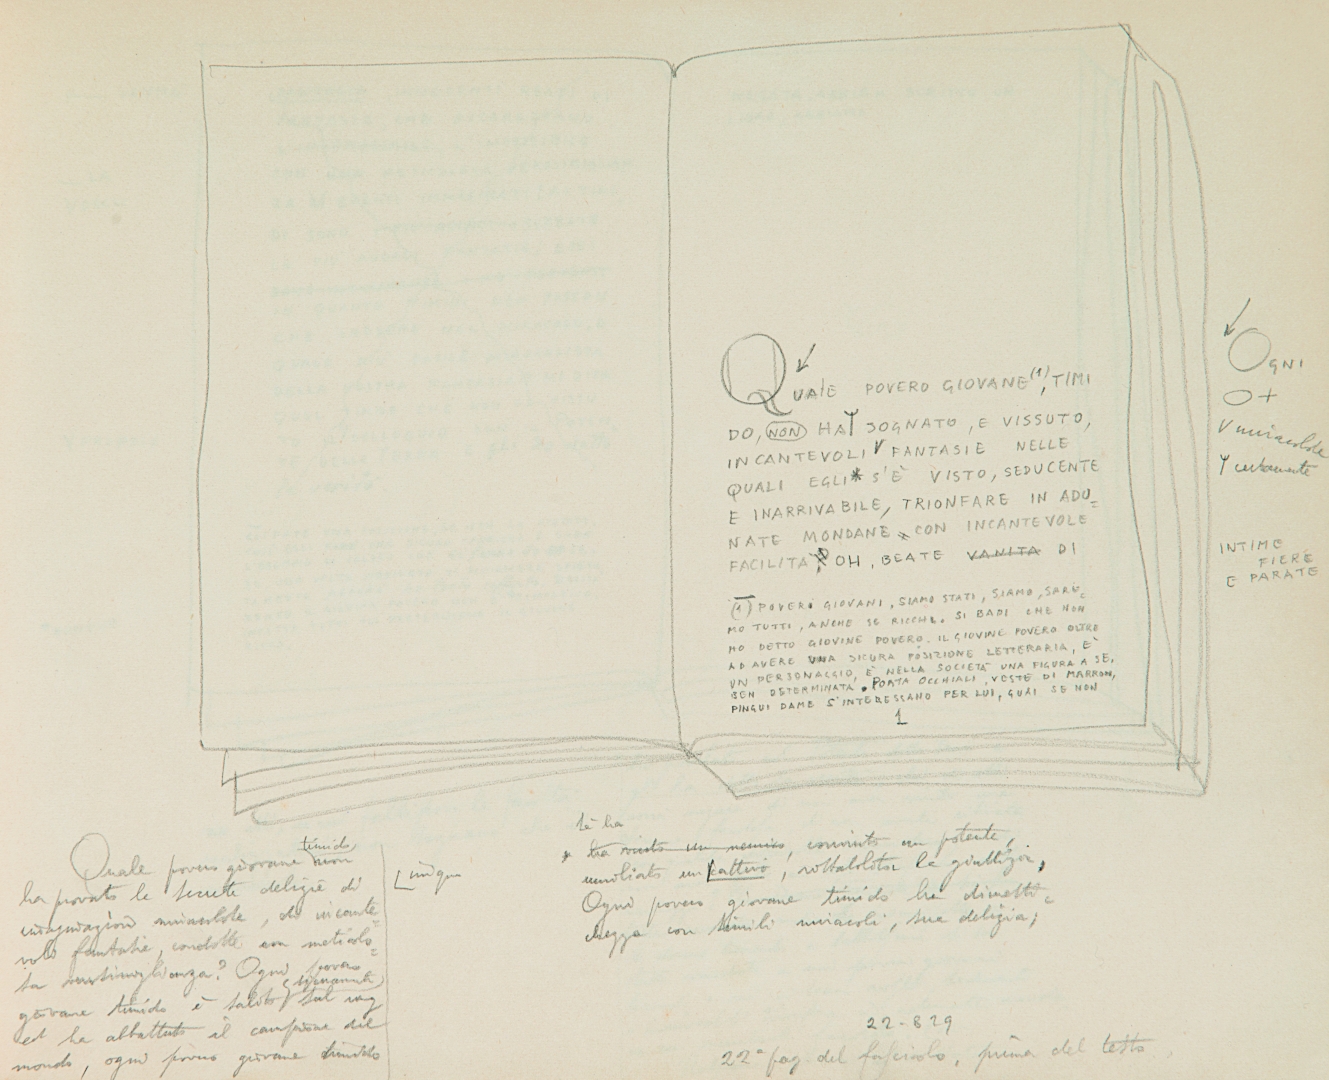 QUALE POVERO GIOVANE (1), TIMI
DO, NON HA SOGNATO, E VISSUTO,
INCANTEVOLI FANTASIE NELLE
QUALI EGLI * S'È VISTO, SEDUCENTE
E INARRIVABILE, TRIONFARE IN ADU=
NATE MONDANE CON INCANTEVOLE
FACILITÀ? OH, BEATE VANITA DI
(1) POVERI GIOVANI, SIAMO STATI, SIAMO, SARE=
MO TUTTI, ANCHE SE RICCHI. SI BADI CHE NON
HO DETTO GIOVINE POVERO. IL GIOVINE POVERO OLTRE
AD AVERE UNA SICURA POSIZIONE LETTERARIA, È
UN PERSONAGGIO, È NELLA SOCIETÀ UNA FIGURA A SÉ,
BEN DETERMINATA. PORTA OCCHIALI, VESTE DI MARRON,
PINGUI DAME S'INTERESSANO PER LUI, GUAI SE NON
1
OGNI
O +
V miracolose
Y certamente
INTIME
FIERE
E PARATE
Quale povero giovane timido non
ha provato le secrete delizie di
immaginazioni miracolose, di incante=
voli fantasie, condotte con meticolo=
sa verosimiglianza? Ogni povero
giovane timido è salito sicuramente sul ring
ed ha abbattuto il campione del
mondo, ogni povero giovane timido
s'è ha
ha vinto un nemico, convinto un potente,
umiliato un cattivo, ristabilita la giustizia.
Ogni povero giovane timido ha dimesti=
chezza con simili miracoli, sua delizia;
22-829
22ª pag. del fascicolo, prima del testo.